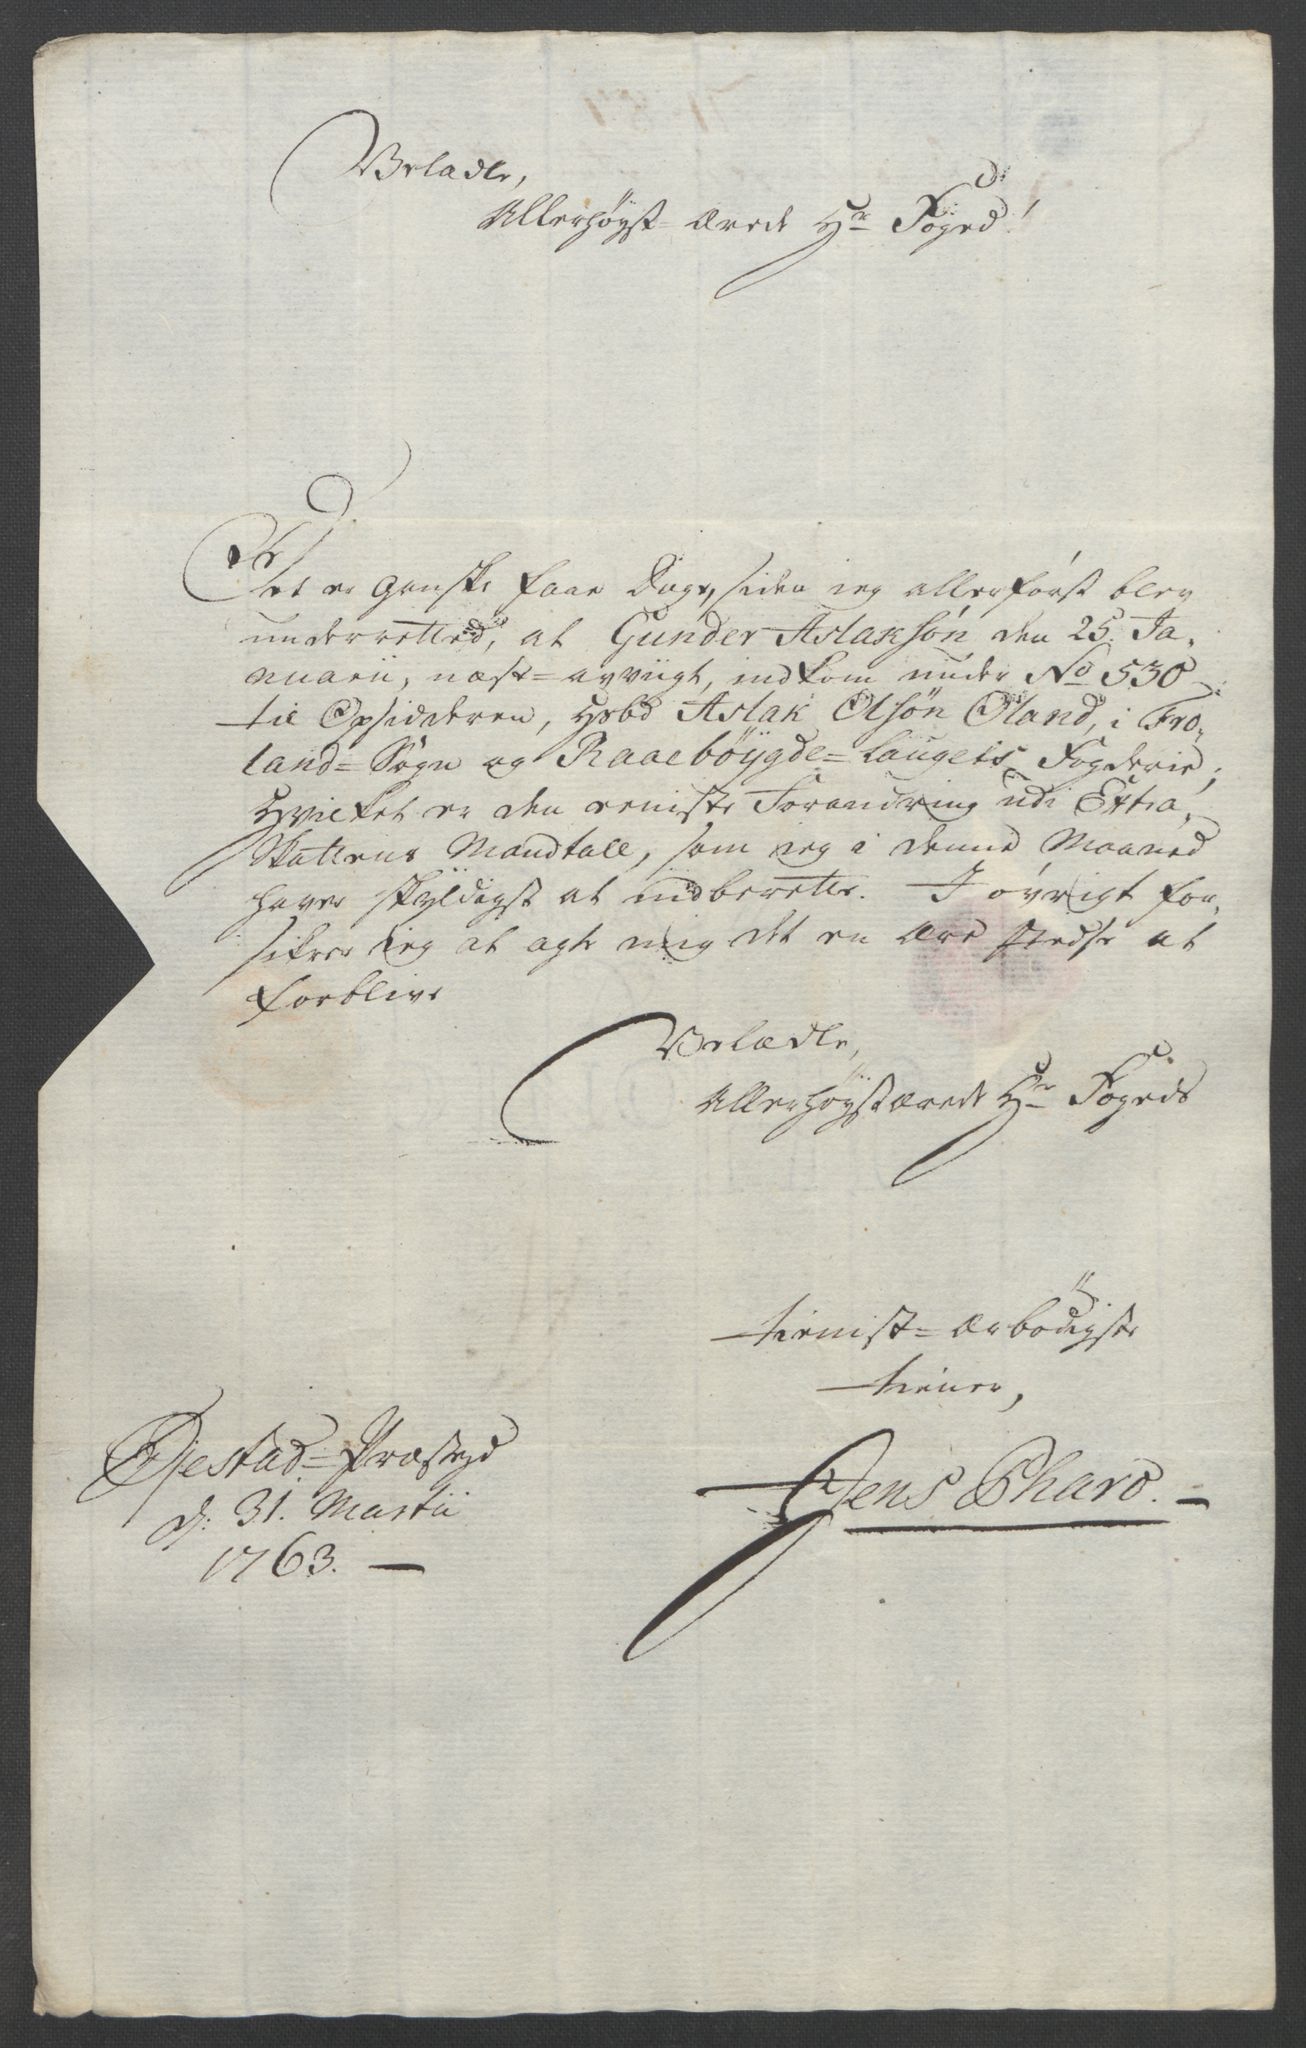 Velædle,
Allerhøyst-ærede Hr Foged!
Det er ganske faae Dage, siden ieg allerførst blev
underretted, at Gunder Aslaksøn den 25. Ja-
nuarii, næst-avvigt, indkom under No 530
til Opsidderen, Aslak Olsøn Øland, i Fro-
land-Sogn og Raaebøygde-Laugets Fogderie;
Hvilket er den eeniste Forandring udi Extra-
Skattens Mandtall, som ieg i denne Maaned
haver skyldigst at indberette. I øvrigt for-
sikrer ieg at agte mig det en Ære stedse at
forblive
Velædle,
Allerhøystærede Hr Fogeds
tienist-ærbødigste
tiener,
Øjestad-Præstegd
d: 31. Martii
1763.
Jens Pharo.